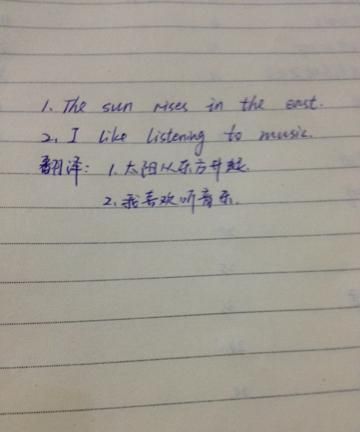 1. The sun rises in the east.
2. I like listening to music.
翻译: 1. 太阳从东方升起.
2. 我喜欢听音乐.